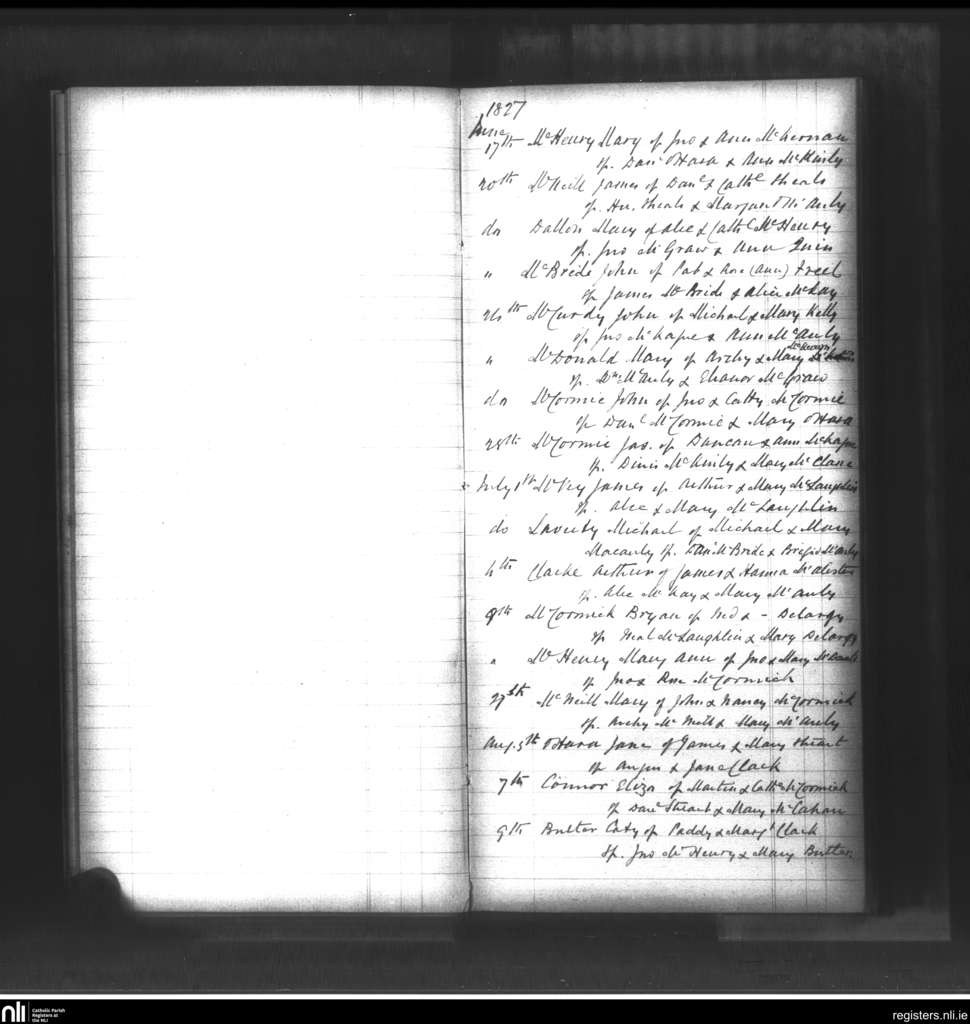 1827
June
17th McHenry Mary of Jno & Ann McKernan
sp. Danl OHara & Ann McKinly
20th McNeill James of Danl & Cathe Sheals
sp. Hu. Sheals & Margaret McAuly
do Dallon Mary of Alec & Cathe McHenry
sp. Jno McGraw & Ann Quin
" McBride John of Pat & Rose (Ann) Freel
sp James McBride & Alice McKay
24th McCurdy John of Michael & Mary Kelly
sp Jno McKague & Ann McAuly
McKeown
" McDonald Mary of Archy & Mary
sp. McAuly & Eleanor McGraw
do McCormic John of Jno & Catty McCormic
sp Danl McCormic & Mary OHara
28th McCormic Jas. of Duncan & Ann McKague
sp. Dinis McKinly & Mary McClane
x July 1st McVey James of Arthur & Mary McLaughlin
sp. Alec & Mary McLaughlin
do Laverty Michael of Michael & Mary
Macauly sp. Danl McBride & Brigid McAuly
4th Clarke Arthur of James & Hanna McAlister
sp. Alec McKay & Mary McAuly
8th McCormick Bryan of Ned & - Delargy
sp Neal McLaughlin & Mary Delargy
" McHenry Mary Ann of Jno & Mary
sp Jno & Rose McCormick
27th McNeill Mary of John & Nancy McCormick
sp. Archy McNeill & Mary McAuly
Aug. 5th OHara Jane of James & Mary Stuart
sp Angus & Jane Clark
7th Connor Eliza of Martin & Cathe McCormick
sp Danl Stuart & Mary McCahan
9th Butter Caty of Paddy & Margt Clark
Sp. Jno McHenry & Mary Butter
nli
Catholic Parish
Registers at
the NLI
registers.nli.ie